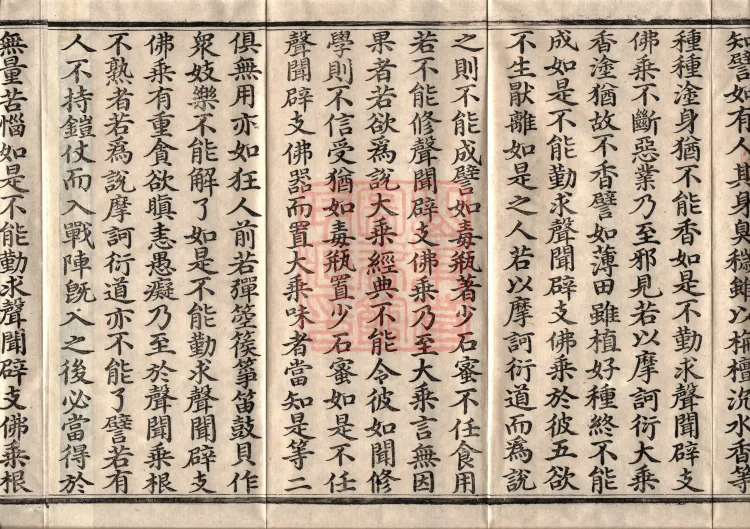 知譬如有人其身臭穢雖以栴檀沉水香等
種種塗身猶不能香如是不勤求聲聞辟支
佛乘不斷惡業乃至邪見若以摩訶衍大乘
香塗猶故不香譬如薄田雖植好種終不能
成如是不能勤求聲聞辟支佛乘於彼五欲
不生厭離如是之人若以摩訶衍道而爲說
之則不能成譬如毒瓶著少石蜜不任食用
若不能修聲聞辟支佛乘乃至大乘言無因
果者若欲爲說大乘經典不能令彼如聞修
學則不信受猶如毒瓶置少石蜜如是不任
聲聞辟支佛器而置大乘味者當知是等二
俱無用亦如狂人前若彈箜篌箏笛鼓貝作
衆妓樂不能解了如是不能勤求聲聞辟支
佛乘有重貪欲瞋恚愚癡乃至於聲聞乘根
不熟者若爲說摩訶衍道亦不能了譬若有
人不持鎧仗而入戰陣旣入之後必當得於
無量苦惱如是不能勤求聲聞辟支佛乘根